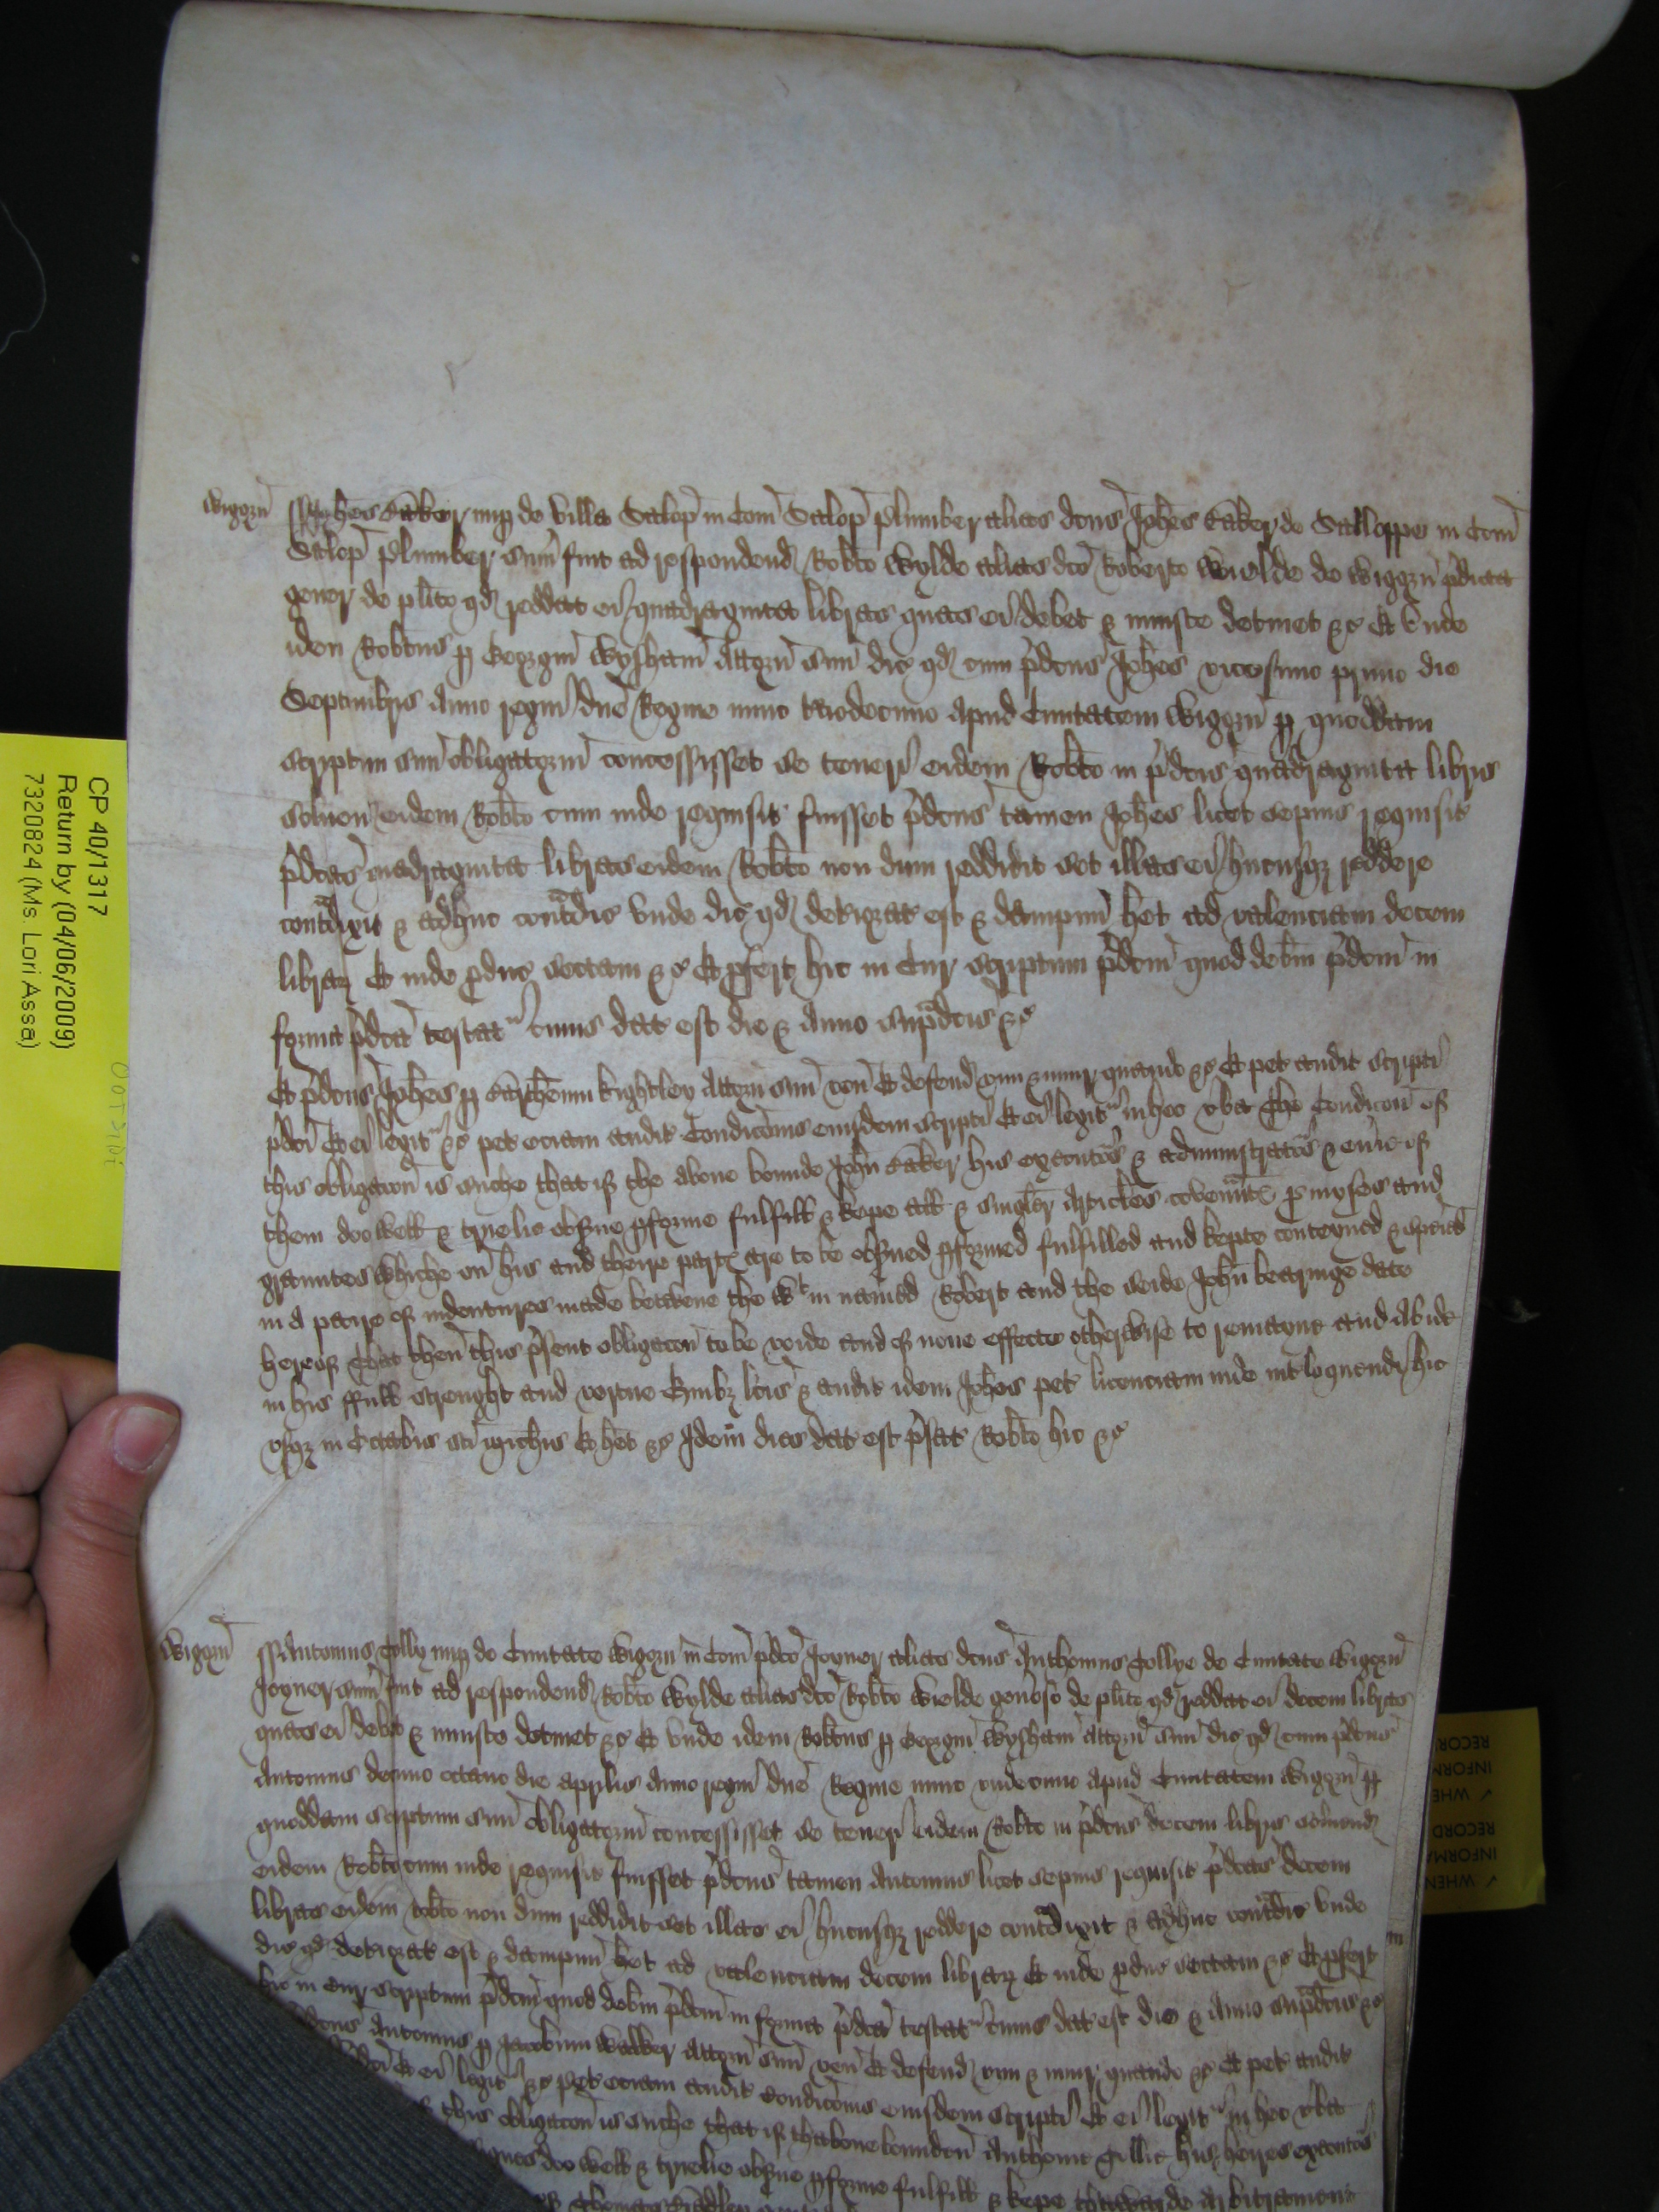 Wigorn
Johes Baker nup de villa Salop in Com Salop plumber alias dcus Johes Baker de Salloppe in Com
Salop plumber sum fuit ad respondend Robto Wylde alias dco Roberto Wielde de Wigorn pdicta
gener de plito qd reddat ei quadraginta libras quas ei debet & iniuste detinet &c Et unde
idem Robtus p Georgium Wysham Attorn suu dic qd cum pdcus Johes vicesimo primo die
Septembris Anno regni dne Regine nunc duodecimo apud Civitatem Wigorn p quoddam
scriptum suu obligatorium concessisset se teneri eidem Robto in pdcis quadraginta libris
solvend eidem Robto cum inde requisit fuisset pdcus tamen Johes licet sepius requisit
pdcas quadraginta libras eidem Robto non dum reddidit set illas ei hucusq reddere
contadixit & adhuc contadic unde dic qd deteriorat est & dampnu het ad valenciam decem
librar Et inde pduc sectam &c Et pfert hic in Cur scriptum pdcm quod debm pdcm in
forma pdca testat cuius dat est die & Anno supadcis &c
Et pdcus Johes p Kightley Attorn suu ven Et defend vim & iniur quando &c Et pet audit scripti
pdci Et ei legit &c pet eciam audit Condicois eiusdem scripti Et ei legit in hec vba The Condicon of
this obligacon is suche that if the above bounde John Baker his executors & administrators & evie of
them doo well & truelie obsve pforme fulfill & kepe all & singler Articles covennts pmyses and
grauntes whiche on his and theire partes are to be obsved pformed fulfilled and kepte conteyned & specified
in a paire of indentures made betwene the wt in named Robert and the seide John bearinge date
hereof That then this psent obligacon to be voide and of none effecte otherwise to remayne and abide
in his full strenght and vertue Quibz lcis & audit idem Johes pet licenciam inde intloquendi hic
usqz in Octabis sci Michis Et het &c Idem dies dat est pfat Robto hic &c
Wigorn
Antonius Golly nup de Civitate Wigorn in Com pdco Joyner alias dcus Anthonius Gollye de Civitate Wigorn
Joyner sum fuit ad respondend Robto Wylde alias dco Robto Wielde generoso de plito qd reddat ei decem libras
quas ei debet & iniuste detinet &c Et unde idem Robtus p Georgiu Wysham attorn suu dic qd cum pdcus
Antonius decimo octavo die Aprilis Anno regni dne Regine nunc undecimo apud Civitatem Wigorn p
quoddam scriptum suu obligatoriu concessisset se teneri eidem Robto in pdcis decem libris solvend
eidem Robto cum inde requisit fuisset pdcus tamen Antonius licet sepius requisit pdcas decem
libras eidem Robto non dum reddidit set illas ei hucusqz reddere contadixit & adhuc contadic unde
dic qd deteriorat est & dampnu het ad valenciam decem librar Et inde pduc sectam &c Et pfert
hic in Cur scriptum pdcm quod debm pdcm in forma pdca testat cuius dat est die & Anno supadcis &c
pdcus Antonius p Jacobum Walker Attorn suu ven Et defend vim & iniur quando &c Et pet audit
pdci Et ei legit &c pet eciam audit Condicois eiusdem scripti Et ei legit in hec vba
this obligacon is suche that if thabove bounden Anthonie Gillie his heires executors
doo well & truelie obsve pforme fulfill & kepe thawarde arbitrament
Thomas
CP 40/1317
Return by (04/06/2009)
7320824 (Ms. Lori Assa)
✓ WHEN
INFORMA
RECORD
✓ WHE
INFORM
RECOR